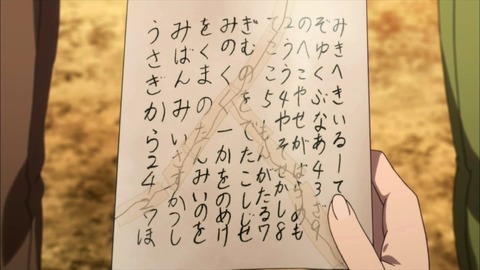 みきへきいるーて
ぞゆくぶなあ43ざ9
のへこやせがばらのも
2うこう4やそ かし8
てこう5 んがたる7
ぎむのをでたこしじぜ
みのくーかをのめけ
をくまのたんみいのを
みばんみいさすかつし
うさぎから247ほ